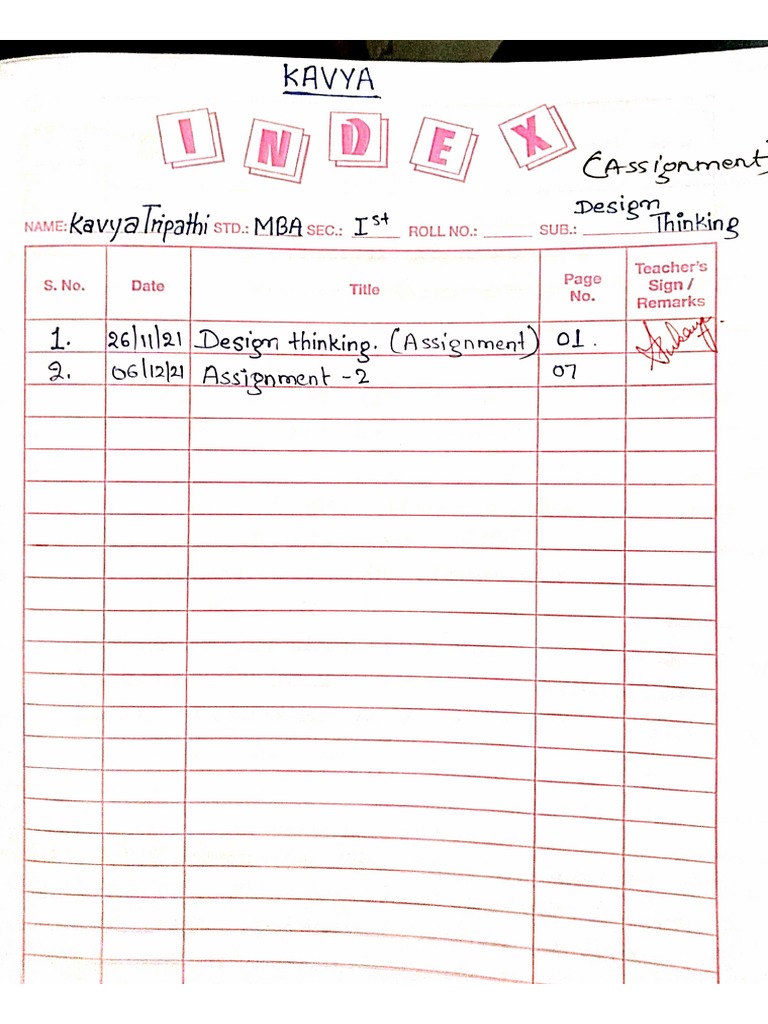 KAVYA
INDEX
(Assignment)
NAME: Kavya Tripathi STD.: MBA SEC.: Ist ROLL NO.: SUB.: Design Thinking
S. No. Date Title Page No. Teacher's Sign / Remarks
1. 26/11/21 Design thinking. (Assignment) 01.
2. 06/12/21 Assignment -2 07